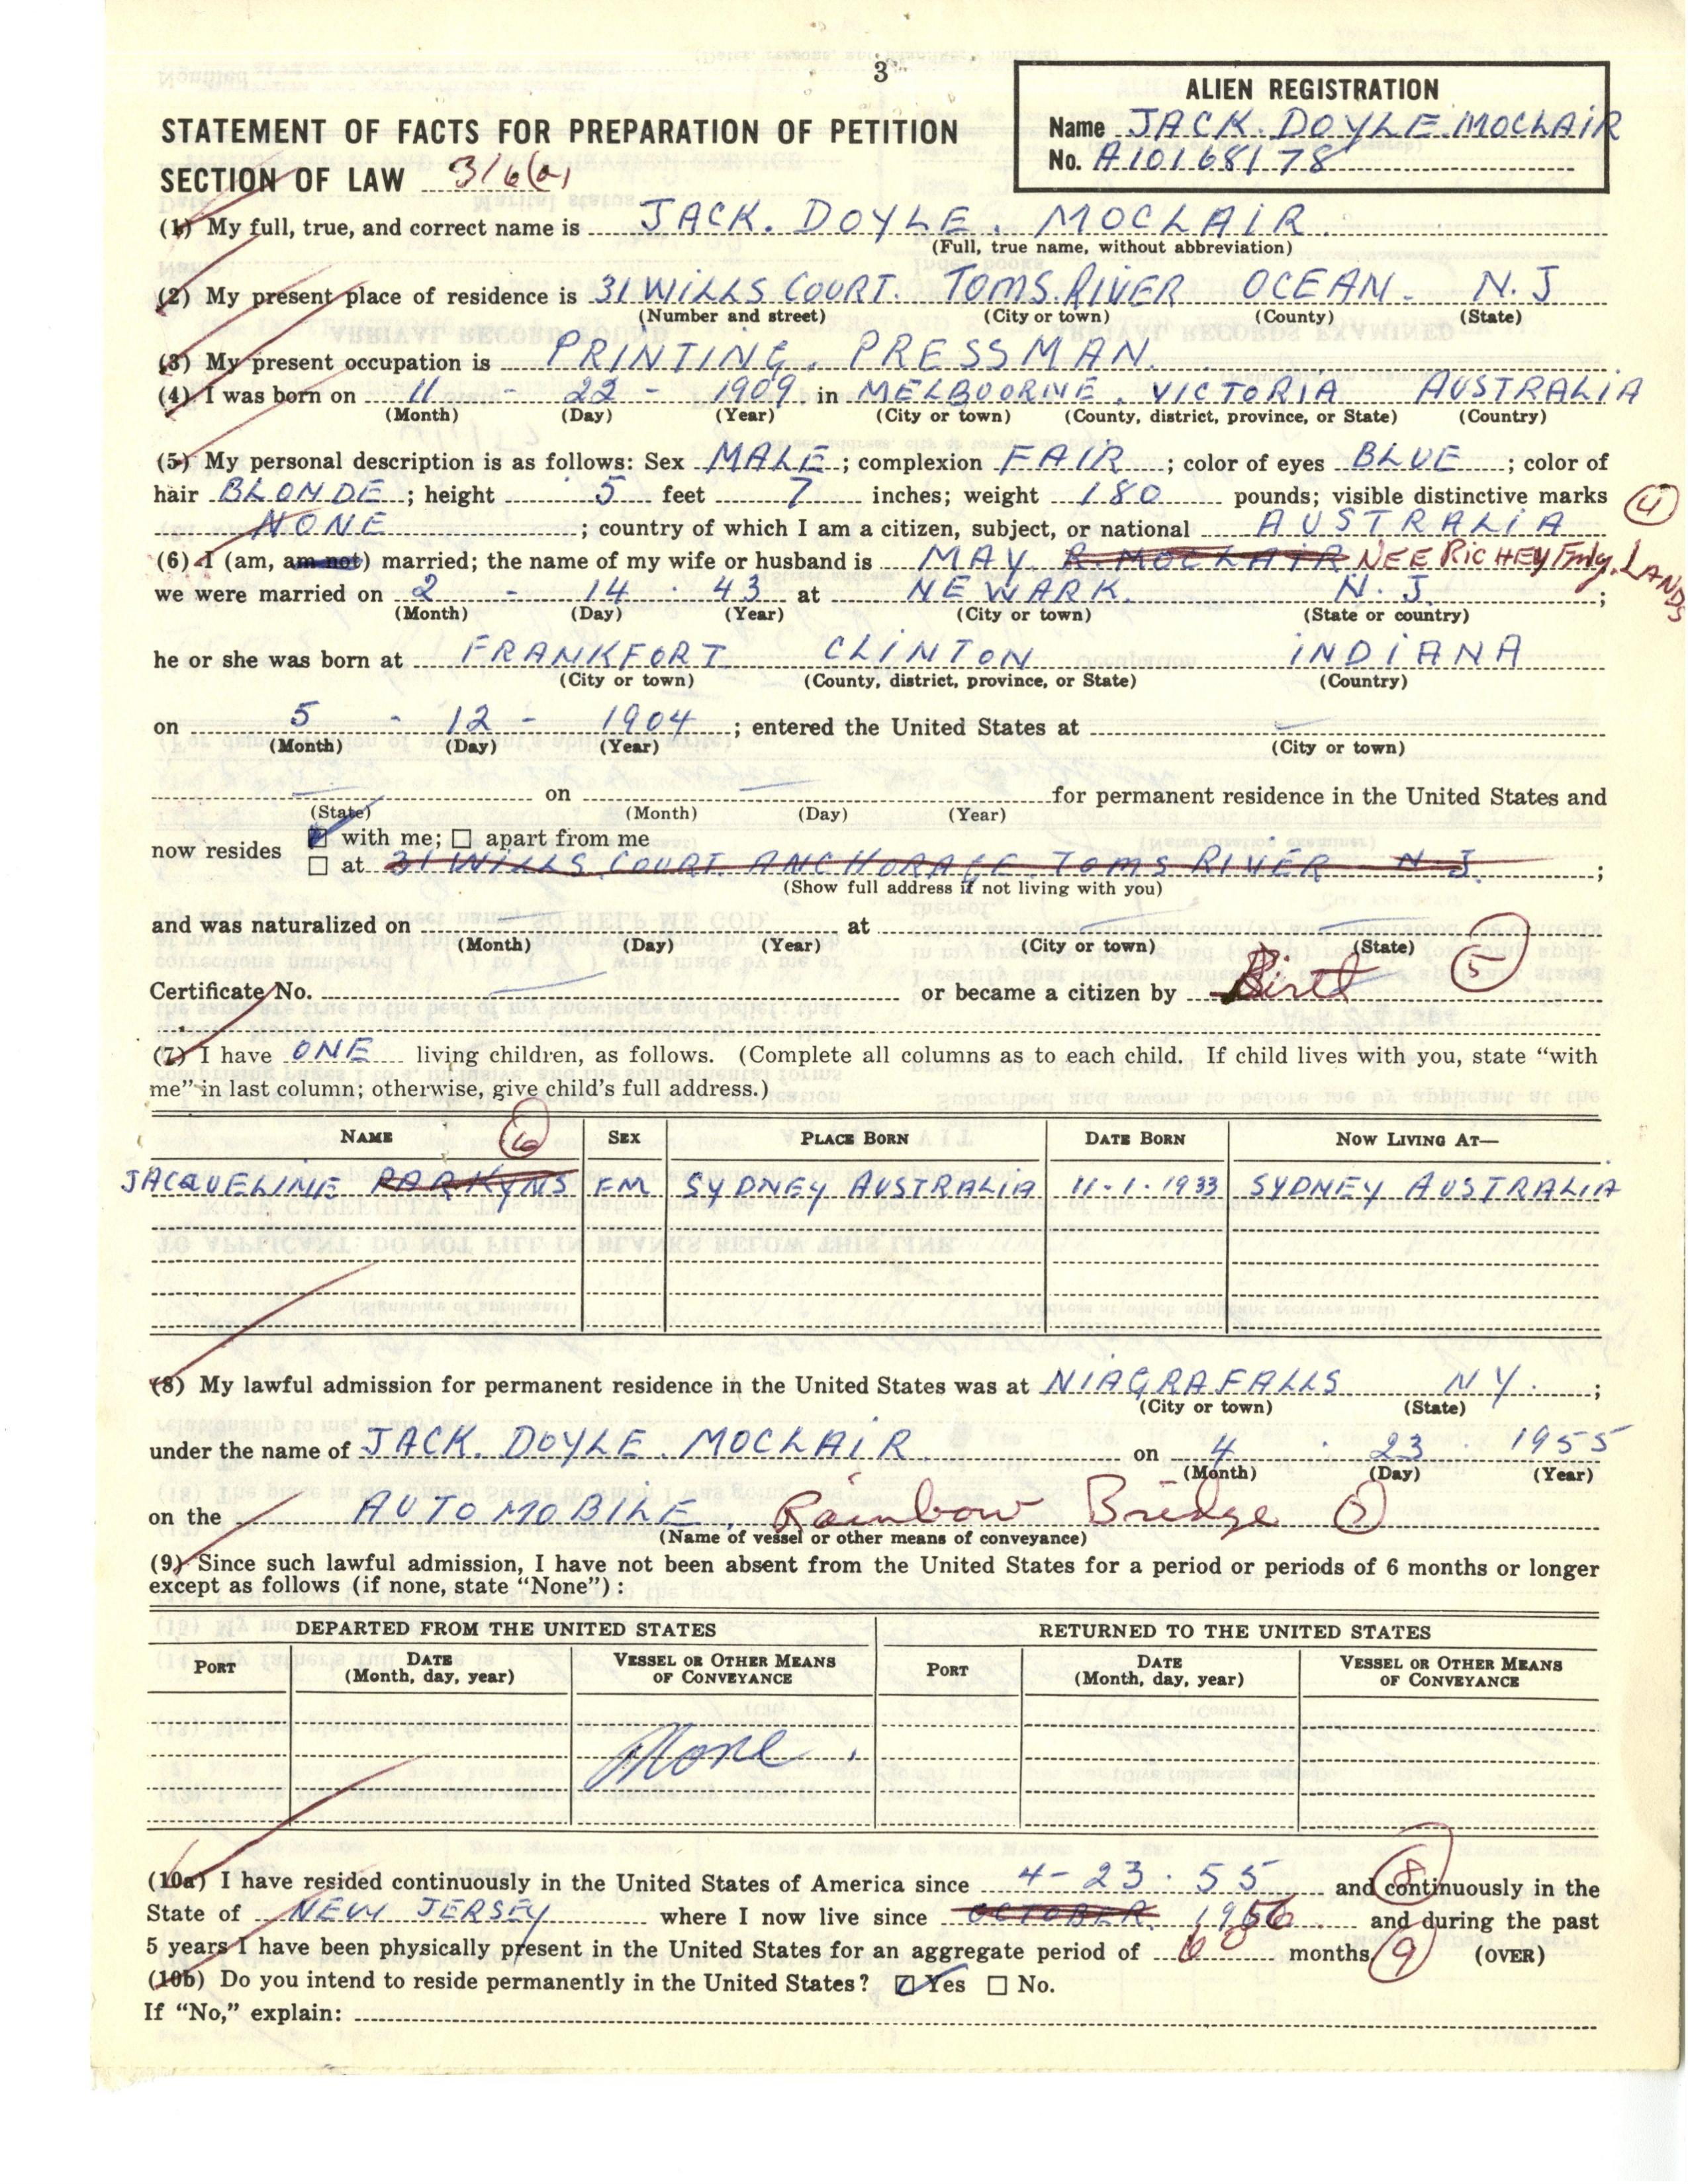 3
ALIEN REGISTRATION
Name JACK. DOYLE. MOCLAIR
No. A10168178
STATEMENT OF FACTS FOR PREPARATION OF PETITION
SECTION OF LAW 316(a)
(1) My full, true, and correct name is JACK. DOYLE. MOCLAIR.
(Full, true name, without abbreviation)
(2) My present place of residence is 31 WILLS COURT. TOMS. RIVER OCEAN. N.J
(Number and street) (City or town) (County) (State)
(3) My present occupation is PRINTING. PRESSMAN.
(4) I was born on 11 - 22 - 1909. in MELBOORNE. VICTORIA AUSTRALIA
(Month) (Day) (Year) (City or town) (County, district, province, or State) (Country)
(5) My personal description is as follows: Sex MALE; complexion FAIR; color of eyes BLUE; color of
hair BLONDE; height 5 feet 7 inches; weight 180 pounds; visible distinctive marks (4)
NONE; country of which I am a citizen, subject, or national AUSTRALIA
(6) I (am, am not) married; the name of my wife or husband is MAY. R. MOCLAIR NEE RICHEY Fmly. LANDS
we were married on 2 - 14 . 43 at NEWARK. N.J.;
(Month) (Day) (Year) (City or town) (State or country)
he or she was born at FRANKFORT CLINTON INDIANA
(City or town) (County, district, province, or State) (Country)
on 5 - 12 - 1904; entered the United States at
(Month) (Day) (Year) (City or town)
on for permanent residence in the United States and
(State) (Month) (Day) (Year)
now resides with me; apart from me
at 31 WILLS COURT ANCHORAGE TOMS RIVER N.J.;
(Show full address if not living with you)
and was naturalized on at
(Month) (Day) (Year) (City or town) (State)
Certificate No. or became a citizen by Birth (5)
(7) I have ONE living children, as follows. (Complete all columns as to each child. If child lives with you, state “with
me” in last column; otherwise, give child's full address.)
NAME (6) SEX PLACE BORN DATE BORN NOW LIVING AT—
JACQUELINE PARKYNS FM SYDNEY AUSTRALIA 11-1-1933 SYDNEY AUSTRALIA
(8) My lawful admission for permanent residence in the United States was at NIAGRA FALLS NY.;
(City or town) (State)
under the name of JACK. DOYLE. MOCLAIR on 4 . 23 . 1955
(Month) (Day) (Year)
on the AUTOMOBILE. Rainbow Bridge
(Name of vessel or other means of conveyance)
(9) Since such lawful admission, I have not been absent from the United States for a period or periods of 6 months or longer
except as follows (if none, state “None”):
DEPARTED FROM THE UNITED STATES RETURNED TO THE UNITED STATES
PORT DATE (Month, day, year) VESSEL OR OTHER MEANS OF CONVEYANCE PORT DATE (Month, day, year) VESSEL OR OTHER MEANS OF CONVEYANCE
None.
(10a) I have resided continuously in the United States of America since 4-23.55 and continuously in the (8)
State of NEW JERSEY where I now live since OCTOBER. 1956. and during the past
5 years I have been physically present in the United States for an aggregate period of 60 months (9) (OVER)
(10b) Do you intend to reside permanently in the United States? Yes No.
If “No,” explain: